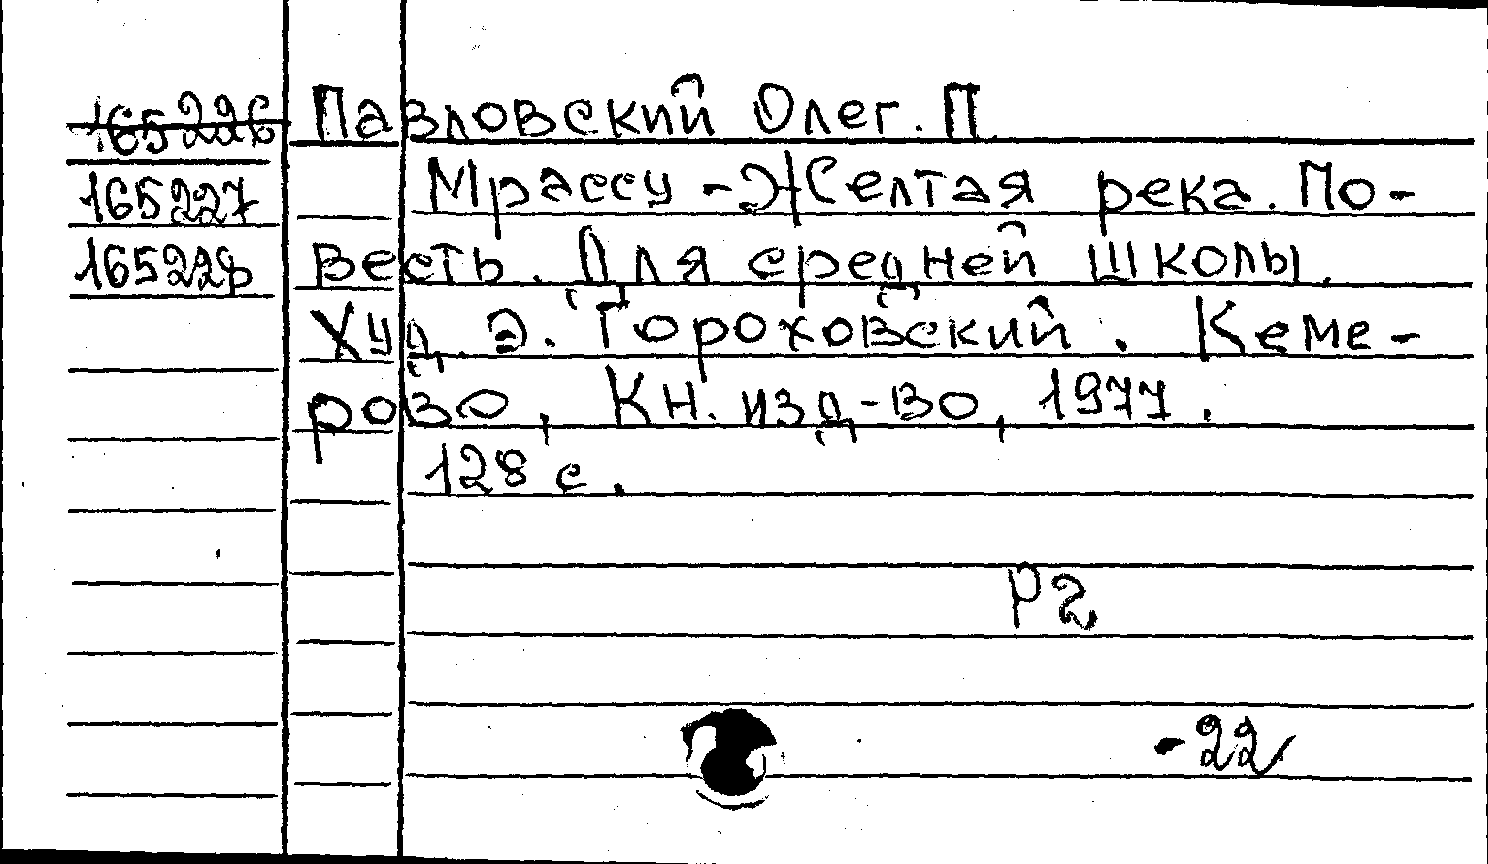 165226 Павловский Олег. П.
165227 Мрассу - Желтая река. По-
165228 весть. Для средней школы.
Худ. Э. Гороховский. Кеме-
рово, Кн. изд-во, 1977.
128 с.
Р2
-22